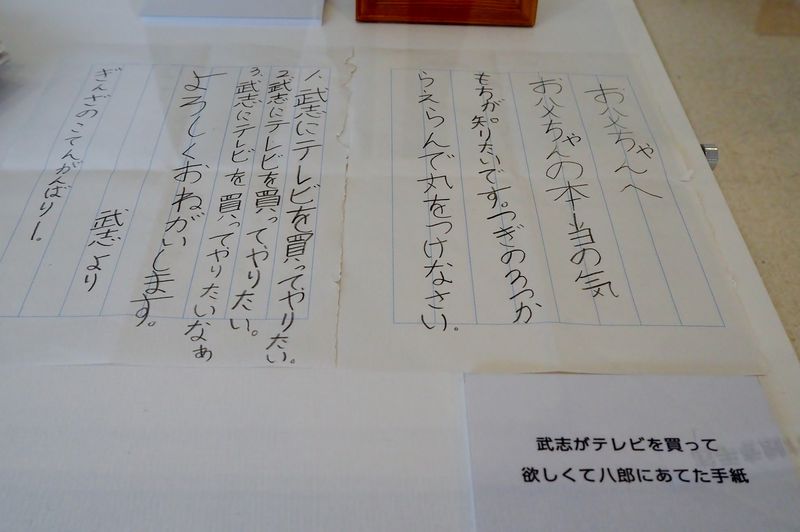 お父ちゃんへ
お父ちゃんの本当の気
もちが知りたいです。つぎの3つか
らえらんで丸をつけなさい。
1. 武志にテレビを買ってやりたい。
2. 武志にテレビを買ってやりたい。
3. 武志にテレビを買ってやりたいなぁ
よろしくおねがいします。
武志より
ぎんざのこてんがんばりー。
武志がテレビを買って
欲しくて八郎にあてた手紙